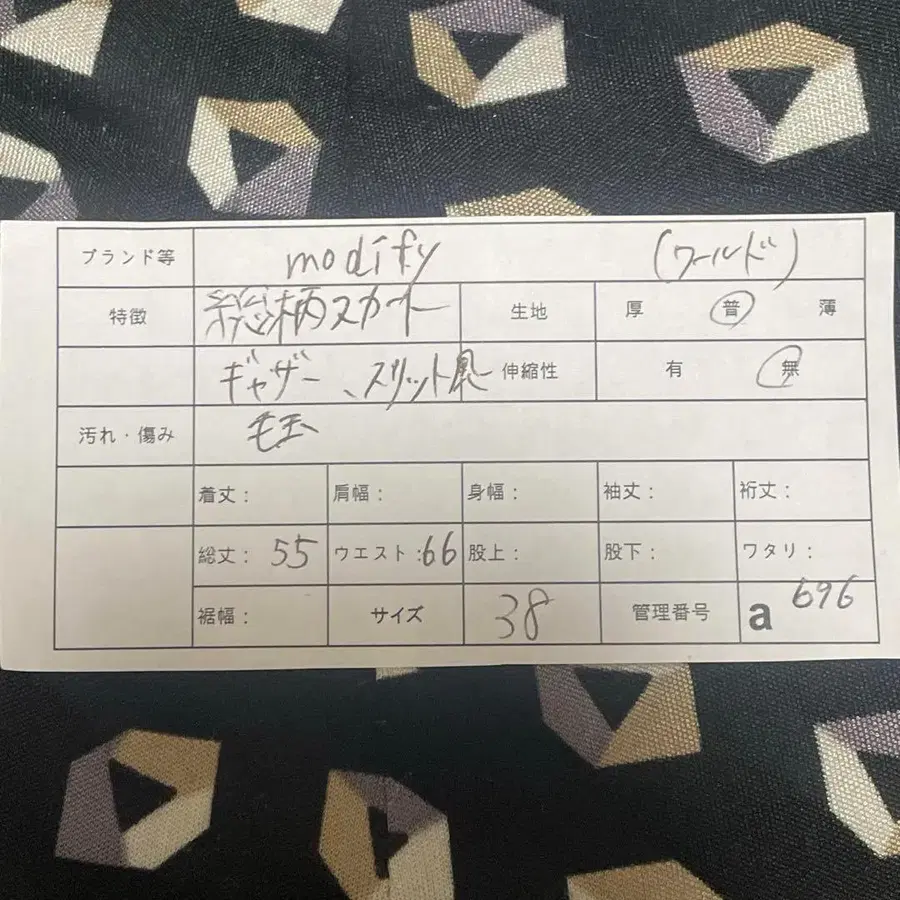 ブランド等 modify (ワールド)
特徴 総柄スカート 生地 厚 普 薄
ギャザー、スリット風 伸縮性 有 無
汚れ・傷み 毛玉
着丈： 肩幅： 身幅： 袖丈： 裄丈：
総丈： 55 ウエスト：66 股上： 股下： ワタリ：
裾幅： サイズ 38 管理番号 a 696